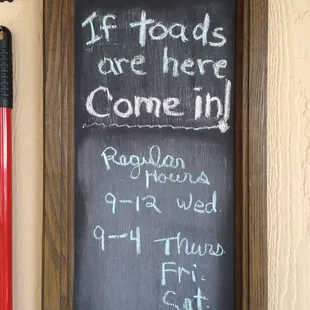 If toads
are here
Come in!
Regular
Hours
9-12 Wed.
9-4 Thurs
Fri.
Sat.